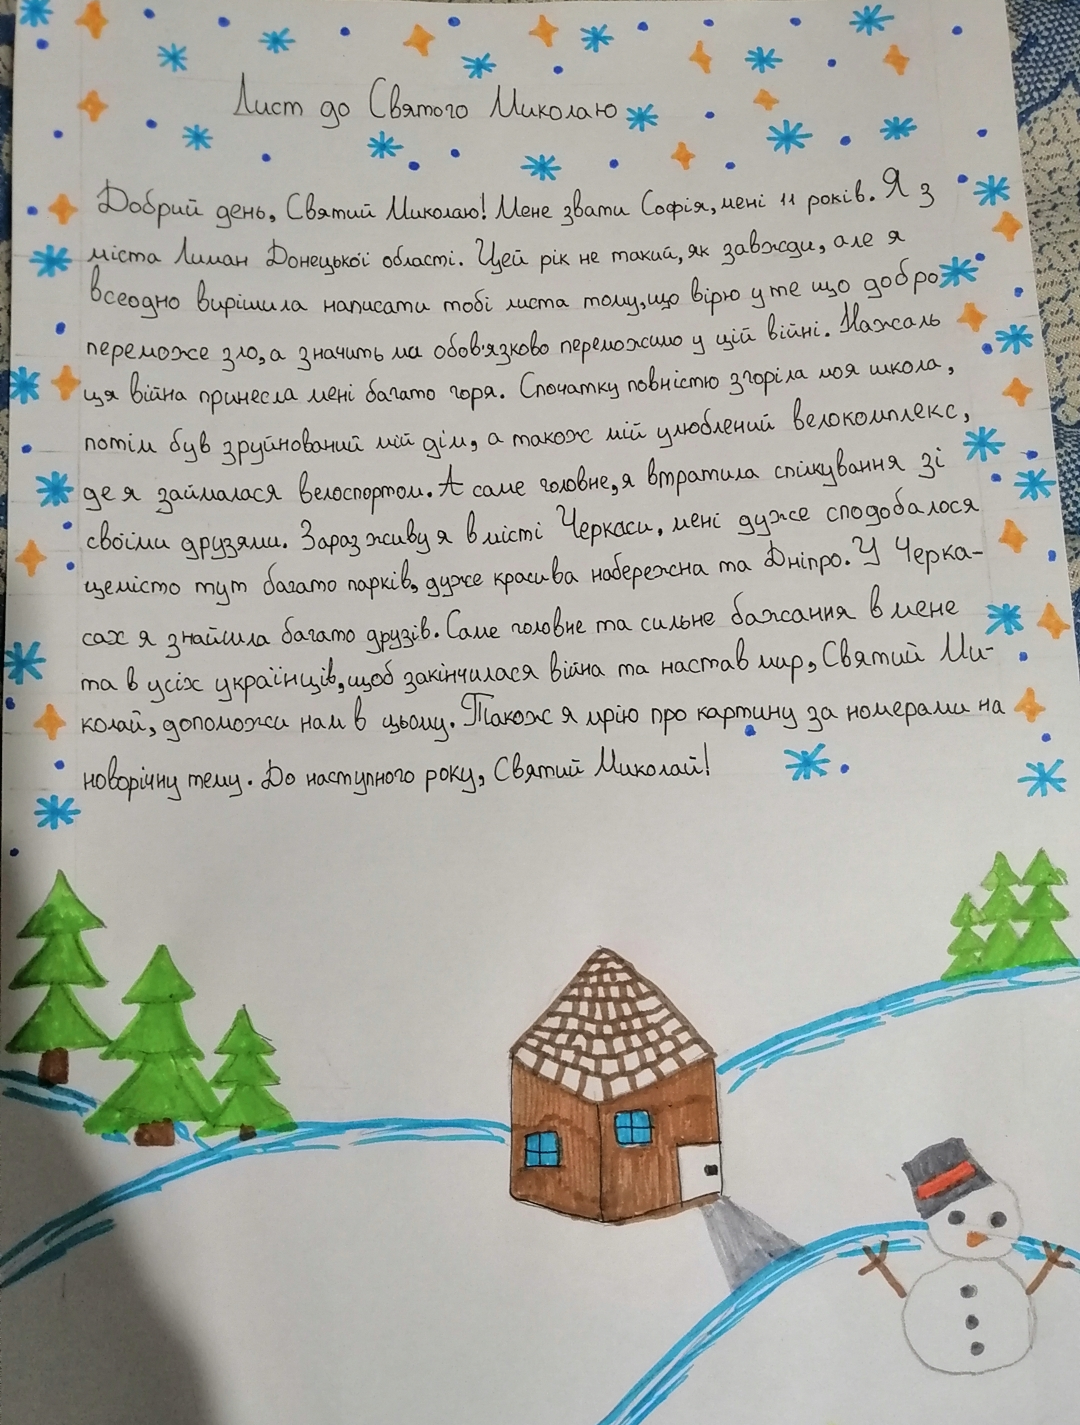 Лист до Святого Миколаю
Добрий день, Святий Миколаю! Мене звати Софія, мені 11 років. Я з
міста Лиман Донецької області. Цей рік не такий, як завжди, але я
всеодно вирішила написати тобі листа тому, що вірю у те що добро
переможе зло, а значить ми обов'язково переможимо у цій війні. Нажаль
ця війна принесла мені багато горя. Спочатку повністю згоріла моя школа,
потім був зруйнований мій дім, а також мій улюблений велокомплекс,
де я займалася велоспортом. А саме головне, я втратила спілкування зі
своїми друзями. Зараз живу я в місті Черкаси, мені дуже сподобалося
це місто тут багато парків, дуже красива набережна та Дніпро. У Черка-
сах я знайшла багато друзів. Саме головне та сильне бажання в мене
та в усіх українців, щоб закінчилася війна та настав мир, Святий Ми-
колай, допоможи нам в цьому. Також я мрію про картину за номерами на
новорічну тему. До наступного року, Святий Миколай!